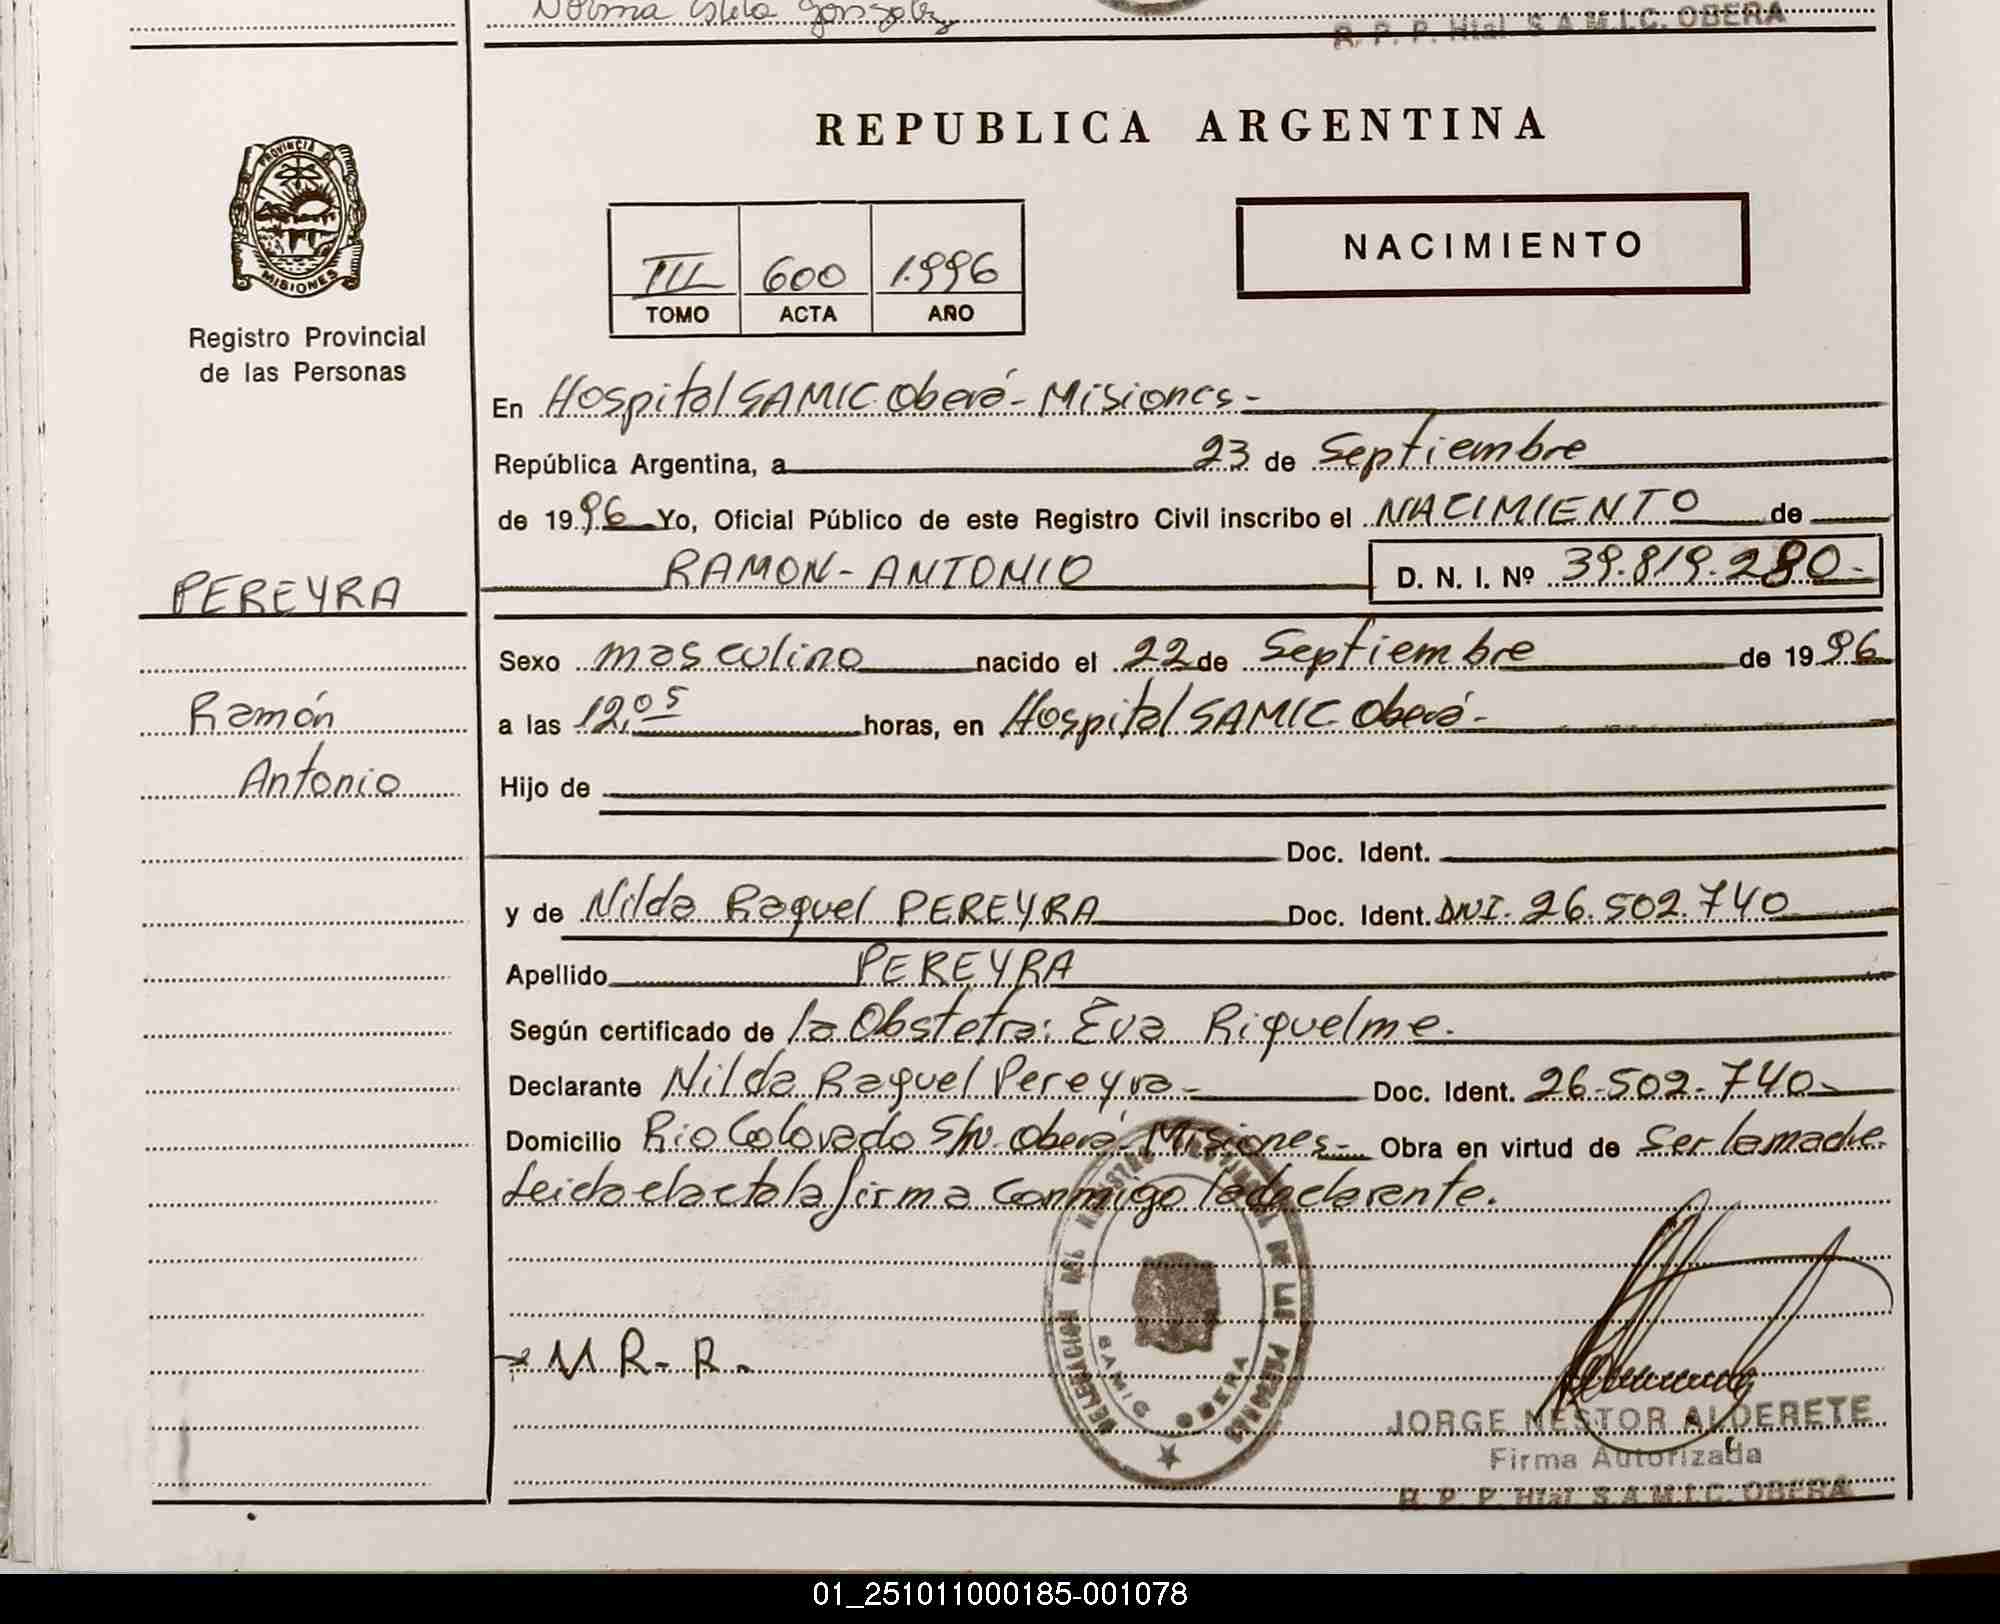 Norma Estela Gonzalez
R. P. P. Htal S.A.M.I.C. OBERA
REPUBLICA ARGENTINA
PROVINCIA DE
MISIONES
Registro Provincial
de las Personas
III 600 1.996
TOMO ACTA AÑO
NACIMIENTO
En Hospital SAMIC. Oberá - Misiones -
República Argentina, a 23 de Septiembre
de 1996 Yo, Oficial Público de este Registro Civil inscribo el NACIMIENTO de
RAMON - ANTONIO D. N. I. Nº 39.819.280-
PEREYRA
Ramón
Antonio
Sexo masculino nacido el 22 de Septiembre de 1996
a las 12,05 horas, en Hospital SAMIC. Oberá-
Hijo de
Doc. Ident.
y de Nilda Raquel PEREYRA Doc. Ident. DNI. 26.502.740
Apellido PEREYRA
Según certificado de la Obstetra: Eva Riquelme.
Declarante Nilda Raquel Pereyra - Doc. Ident. 26-502-740-
Domicilio Rio Colorado S/N. Oberá - Misiones - Obra en virtud de ser la madre
Leida el acta la firma conmigo la declarante.
DELEGACION DEL REGISTRO PROVINCIAL DE LAS PERSONAS
SAMIC OBERA
N R. R.
JORGE NESTOR ALDERETE
Firma Autorizada
R. P. P. Htal S.A.M.I.C. OBERA
01_251011000185-001078